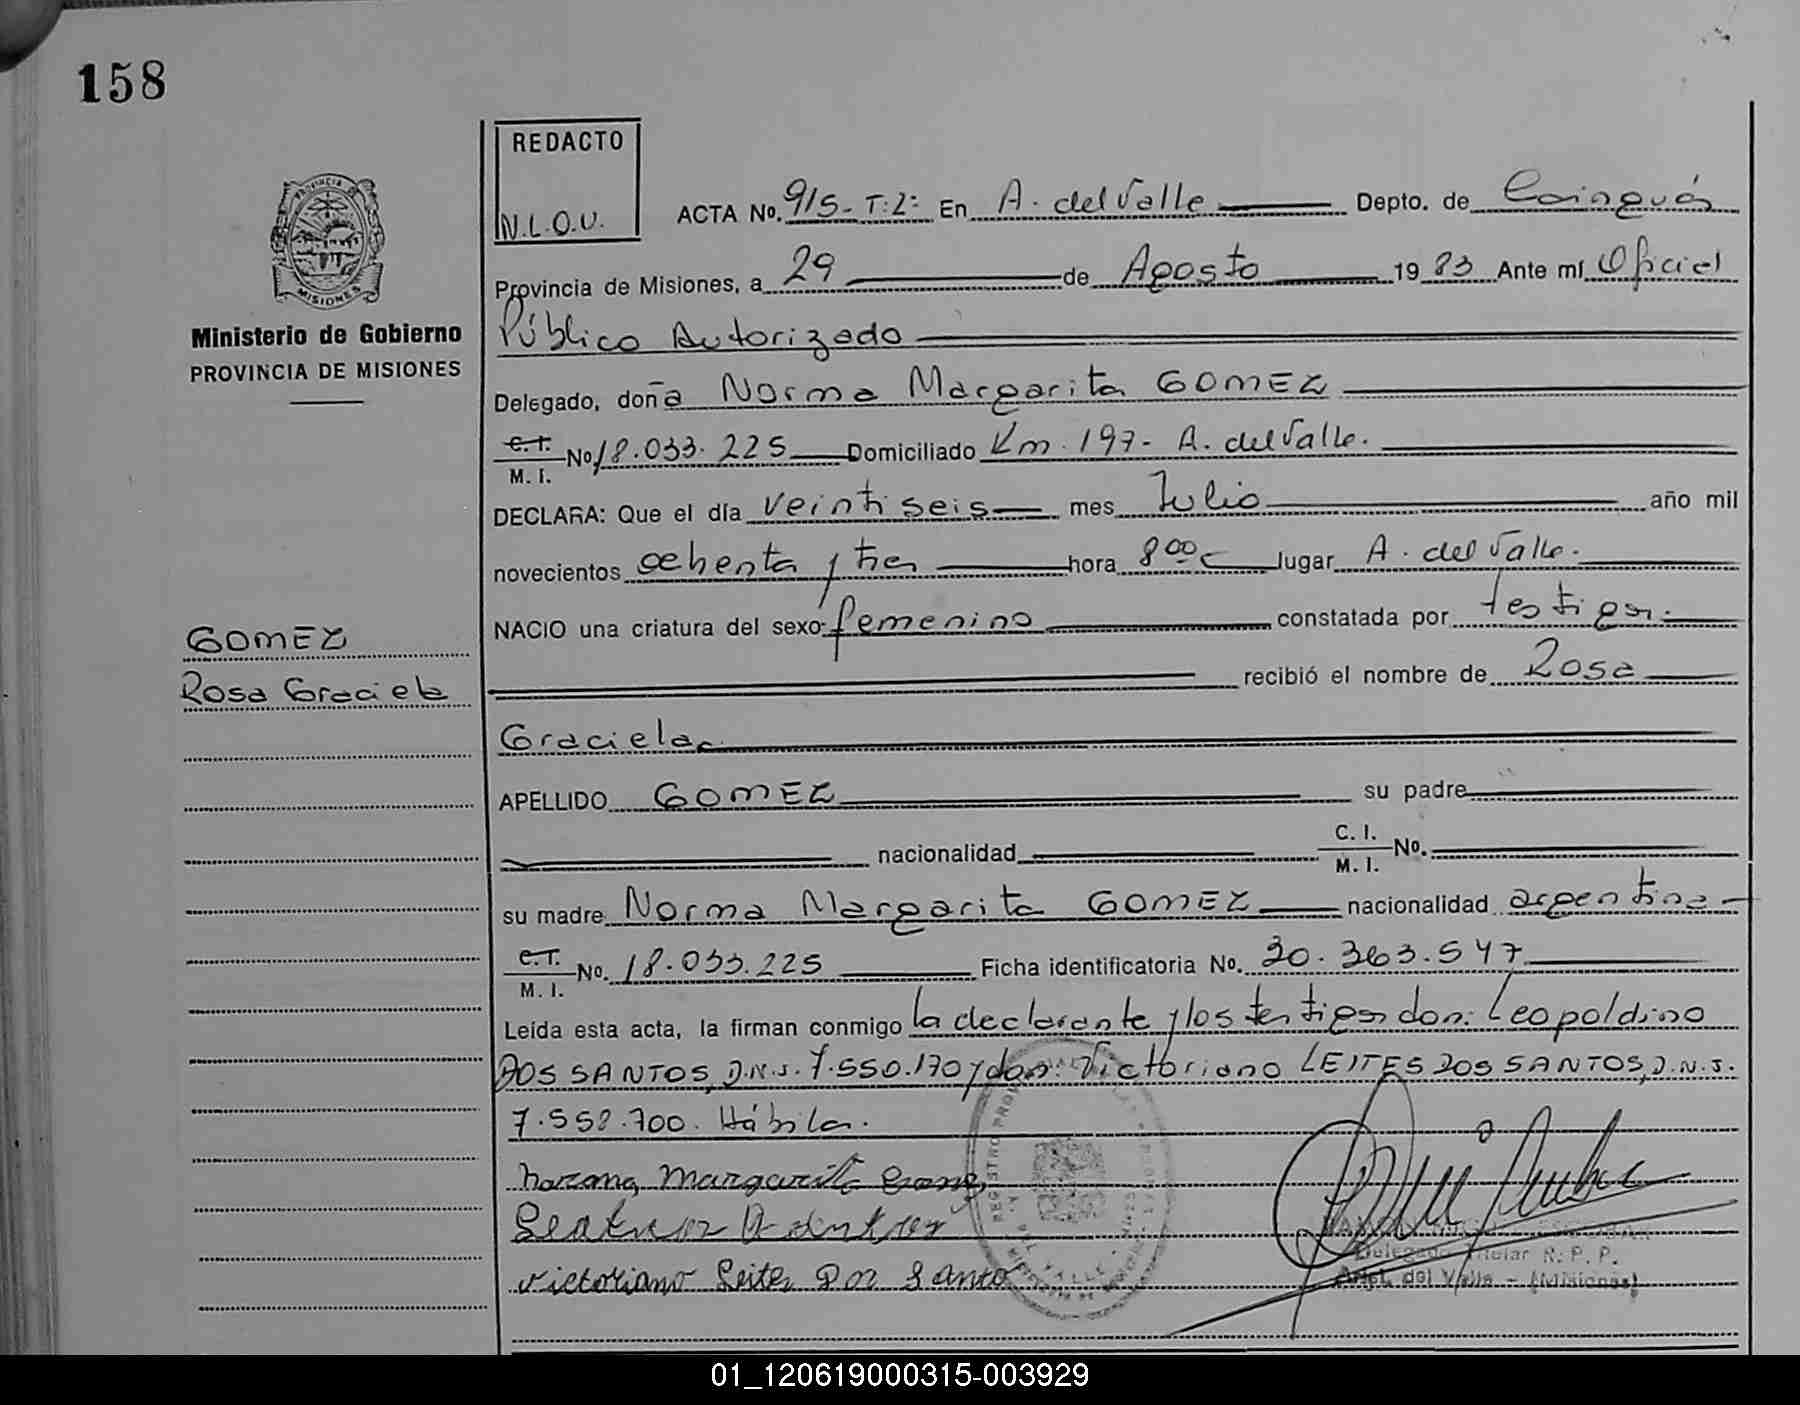 158
REDACTO
N.L.O.U.
ACTA No. 915- T:2: En A. del Valle Depto. de Cainguás
Provincia de Misiones, a 29 de Agosto 1983 Ante mí Oficial
Público Autorizado
Ministerio de Gobierno
PROVINCIA DE MISIONES
Delegado, doña Norma Margarita GOMEZ
C.I. M. I. No 18.033.225 Domiciliado Km. 197- A. del Valle.
DECLARA: Que el día veintiseis mes Julio año mil
novecientos ochenta y tres hora 8:00 lugar A. del Valle.
NACIO una criatura del sexo femenino constatada por testigos.
recibió el nombre de Rosa
GOMEZ
Rosa Graciela
Graciela
APELLIDO GOMEZ su padre
nacionalidad C. I. M. I. No.
su madre Norma Margarita GOMEZ nacionalidad argentina
C.I. M. I. No. 18.033.225 Ficha identificatoria No. 30.363.547
Leída esta acta, la firman conmigo la declarante y los testigos don: Leopoldino
DOS SANTOS, D.N.I. 7.550.170 y don: Victoriano LEITES DOS SANTOS, D.N.I.
7.558.700. Hábiles.
Norma Margarita Gomez
Victoriano Leites Dos Santo
Delegado Titular R. P. P.
Arist. del Valle - (Misiones)
01_120619000315-003929